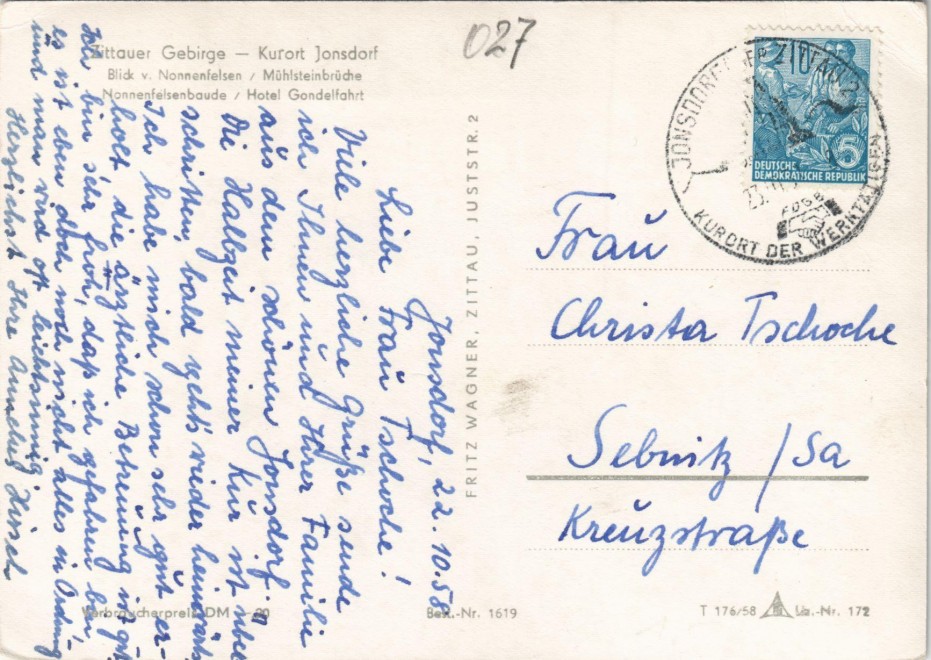 Zittauer Gebirge — Kurort Jonsdorf
Blick v. Nonnenfelsen / Mühlsteinbrüche
Nonnenfelsenbaude / Hotel Gondelfahrt
027
Jonsdorf, 22.10.58
Liebe Frau Tschoche!
Viele herzliche Grüße sende
ich Ihnen und Ihrer Familie
aus dem schönen Jonsdorf.
Die Halbzeit meiner Kur ist über
schritten, bald geht's wieder heimwärts
Ich habe mich schon sehr gut er-
holt, die ärztliche Betreuung ist gut
Ich bin sehr froh, daß ich gefahren bin,
es ist eben doch noch nicht alles in Ordnung
und man wird oft leichtsinnig.
Herzlichst Ihre
FRITZ WAGNER, ZITTAU, JUSTSTR. 2
JONSDORF ÜBER ZITTAU 2
23.
FDGB
KURORT DER WERKTÄTIGEN
10
DEUTSCHE
DEMOKRATISCHE REPUBLIK
5
Frau
Christa Tschoche
Sebnitz /Sa
Kreuzstraße
Verbraucherpreis DM —.20
Best.-Nr. 1619
T 176/58 Liz.-Nr. 172